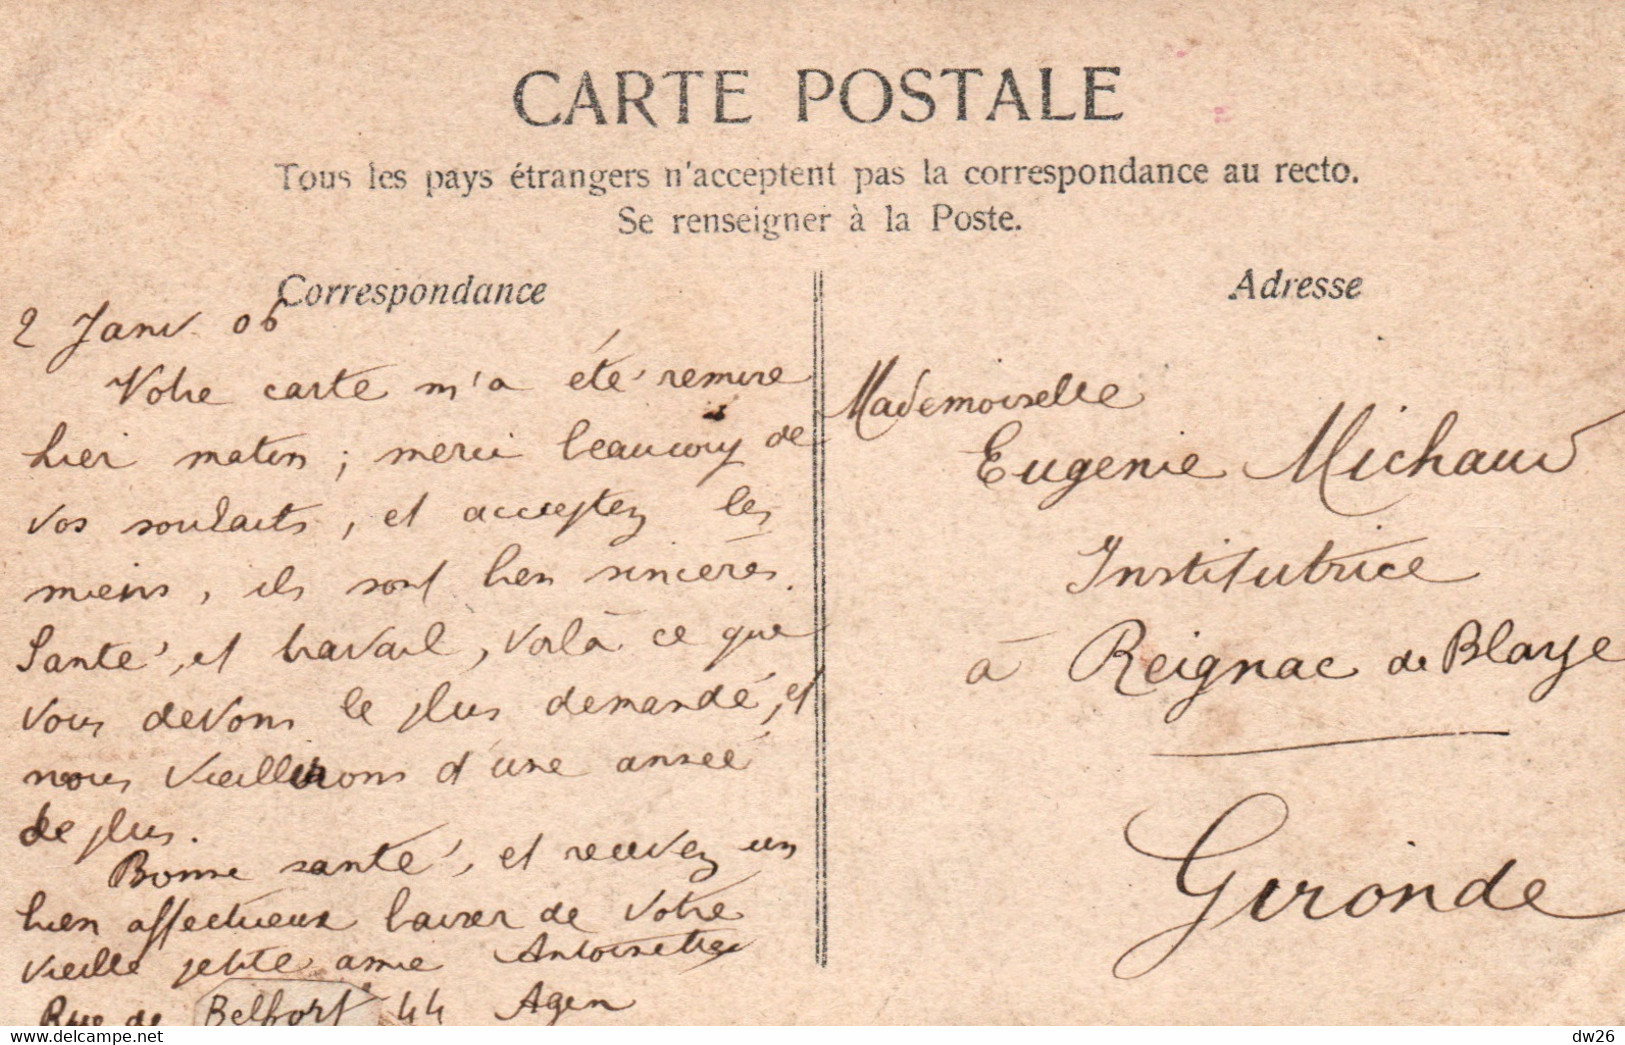 CARTE POSTALE
Tous les pays étrangers n'acceptent pas la correspondance au recto.
Se renseigner à la Poste.
Correspondance
2 Janv. 06
Votre carte m'a été remise
hier matin ; merci beaucoup de
vos souhaits, et acceptez les
miens, ils sont bien sincères.
Santé, et travail, voilà ce que
vous devons le plus demandé, et
nous vieillirons d'une année
de plus.
Bonne santé, et recevez un
bien affectueux baiser de votre
vieille petite amie Antoinette
Rue de Belfort 44 Agen
Adresse
Mademoiselle
Eugenie Michaud
Institutrice
à Reignac de Blaye
Gironde
dw26